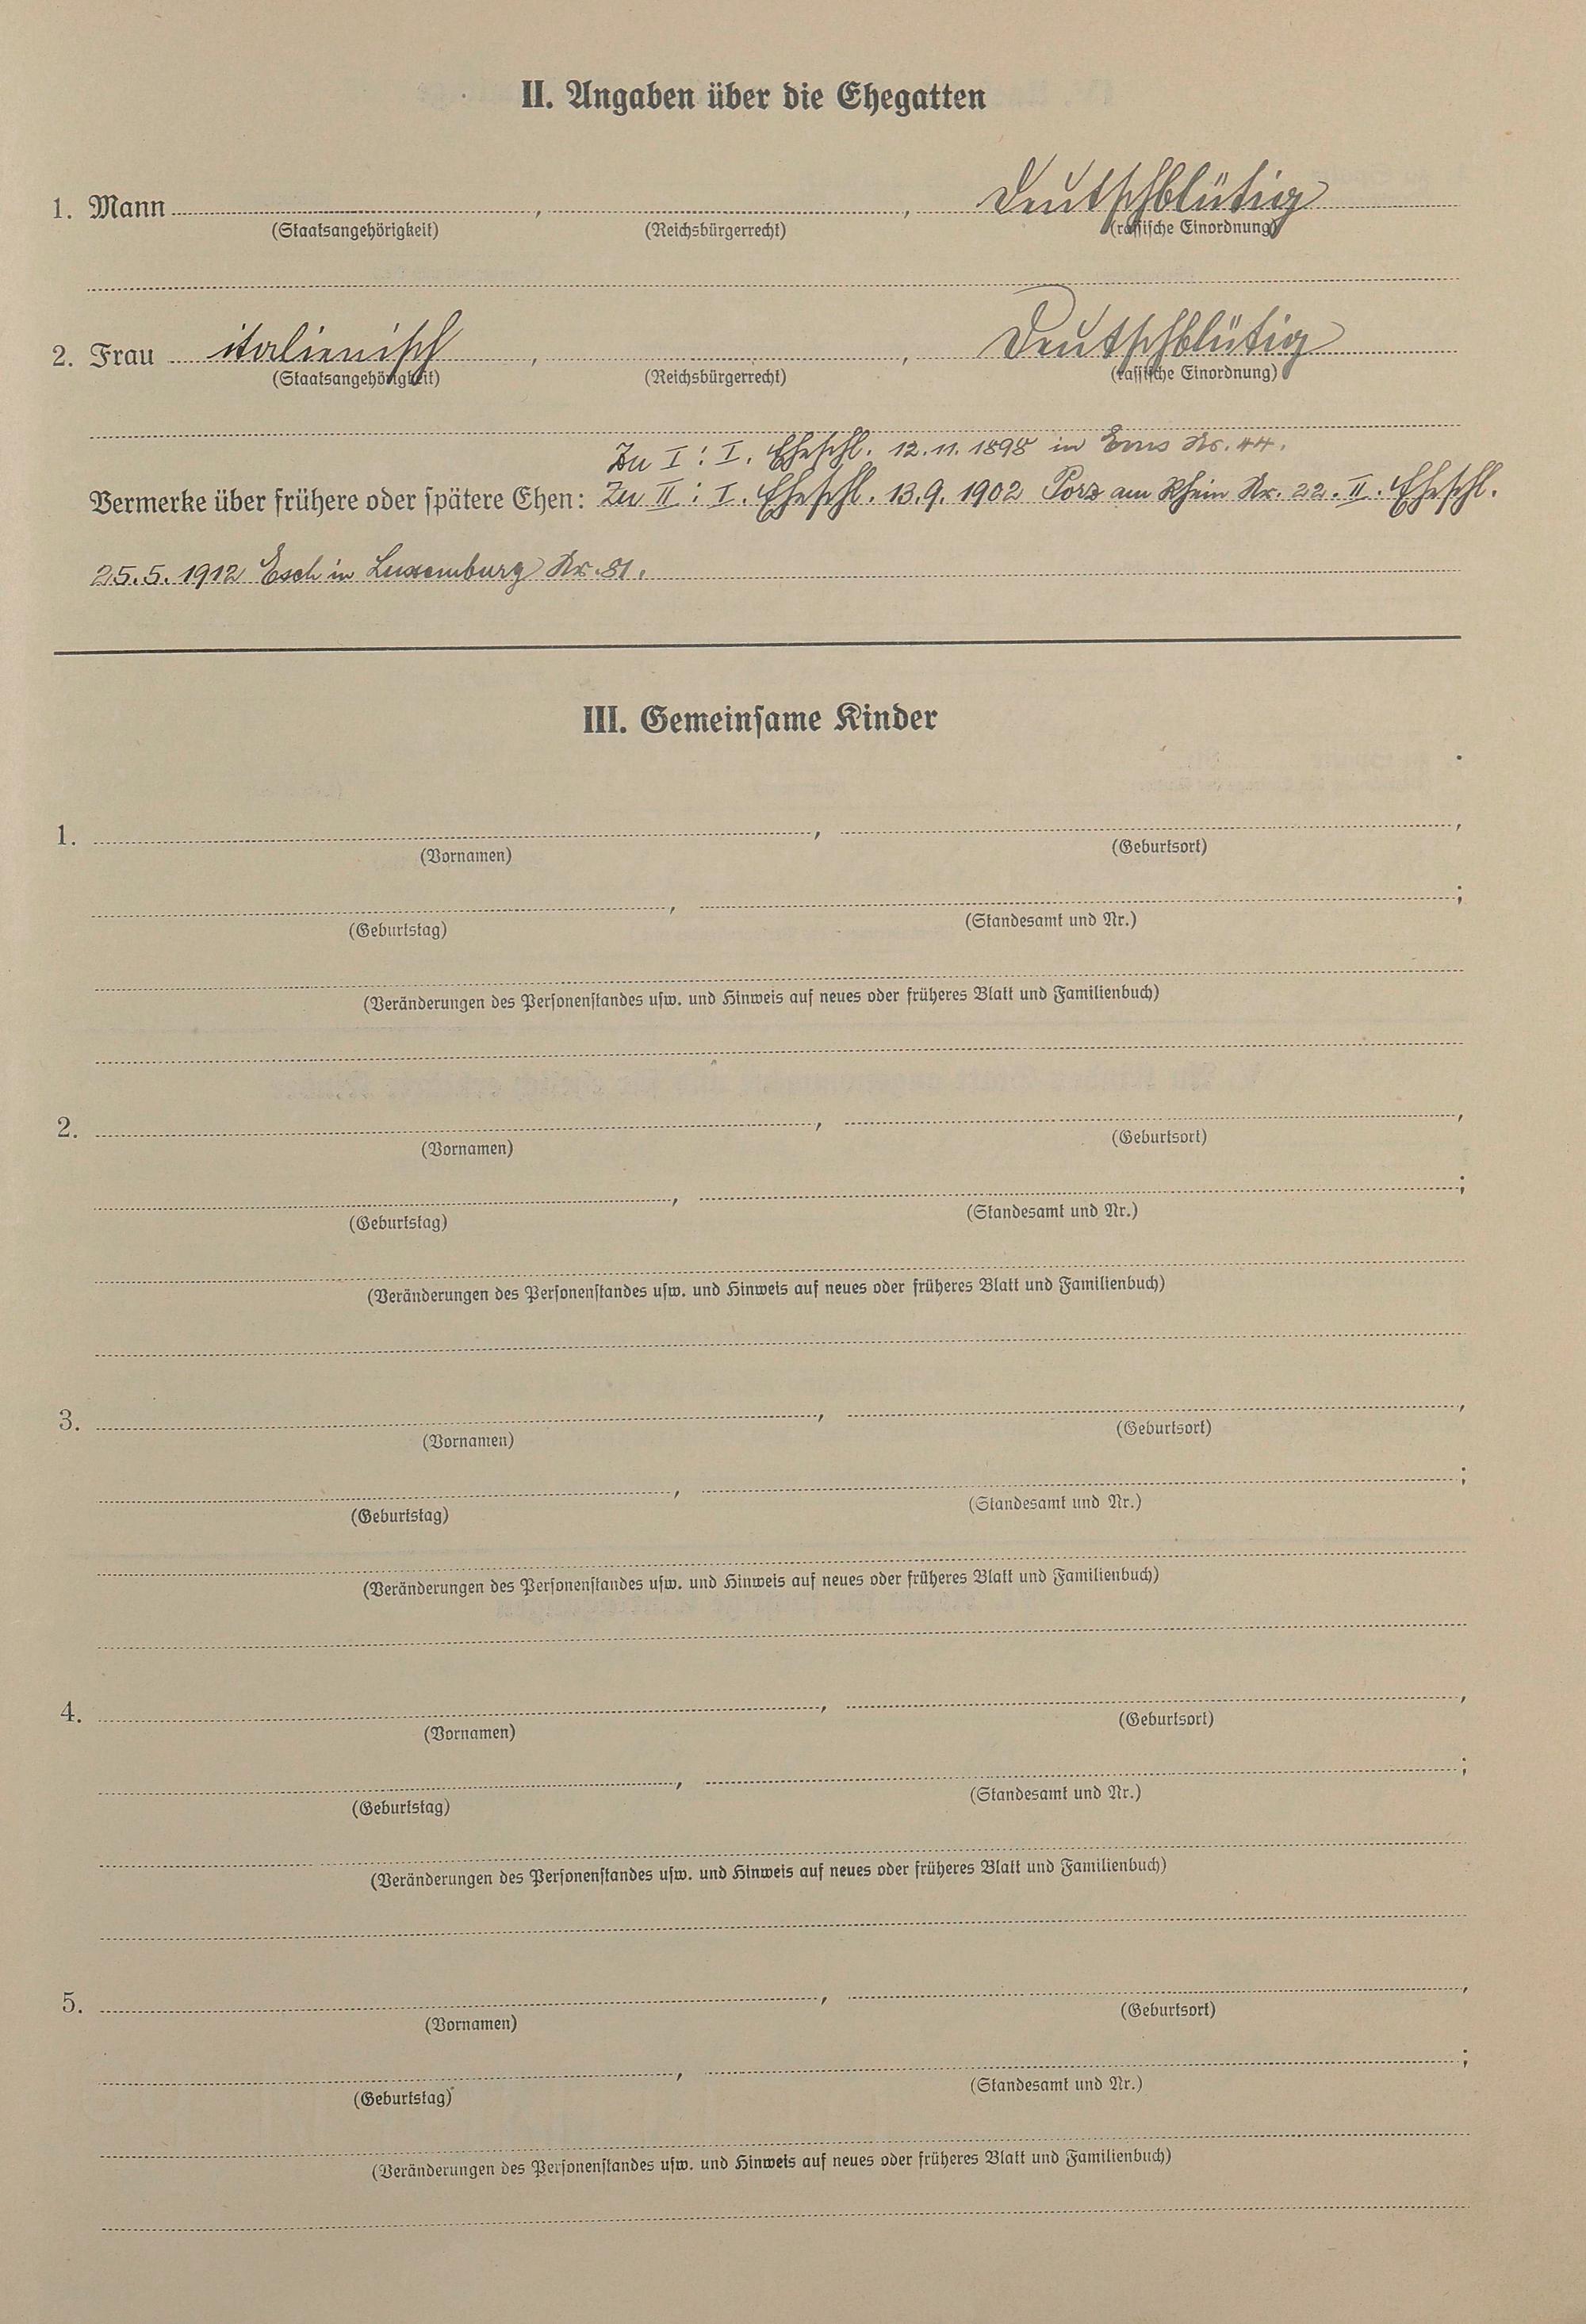 II. Angaben über die Ehegatten
1. Mann , , Deutschblütig
(Staatsangehörigkeit) (Reichsbürgerrecht) (rassische Einordnung)
2. Frau italienisch , , Deutschblütig
(Staatsangehörigkeit) (Reichsbürgerrecht) (rassische Einordnung)
Zu I : I. Eheschl. 12.11.1898 in Ems Nr. 44.
Vermerke über frühere oder spätere Ehen: Zu II : I. Eheschl. 13.9.1902 Porz am Rhein Nr. 22. II. Eheschl.
25.5.1912 Esch in Luxemburg Nr. 81.
III. Gemeinsame Kinder
1. , ,
(Vornamen) (Geburtsort)
, ;
(Geburtstag) (Standesamt und Nr.)
(Veränderungen des Personenstandes usw. und Hinweis auf neues oder früheres Blatt und Familienbuch)
2. , ,
(Vornamen) (Geburtsort)
, ;
(Geburtstag) (Standesamt und Nr.)
(Veränderungen des Personenstandes usw. und Hinweis auf neues oder früheres Blatt und Familienbuch)
3. , ,
(Vornamen) (Geburtsort)
, ;
(Geburtstag) (Standesamt und Nr.)
(Veränderungen des Personenstandes usw. und Hinweis auf neues oder früheres Blatt und Familienbuch)
4. , ,
(Vornamen) (Geburtsort)
, ;
(Geburtstag) (Standesamt und Nr.)
(Veränderungen des Personenstandes usw. und Hinweis auf neues oder früheres Blatt und Familienbuch)
5. , ,
(Vornamen) (Geburtsort)
, ;
(Geburtstag) (Standesamt und Nr.)
(Veränderungen des Personenstandes usw. und Hinweis auf neues oder früheres Blatt und Familienbuch)